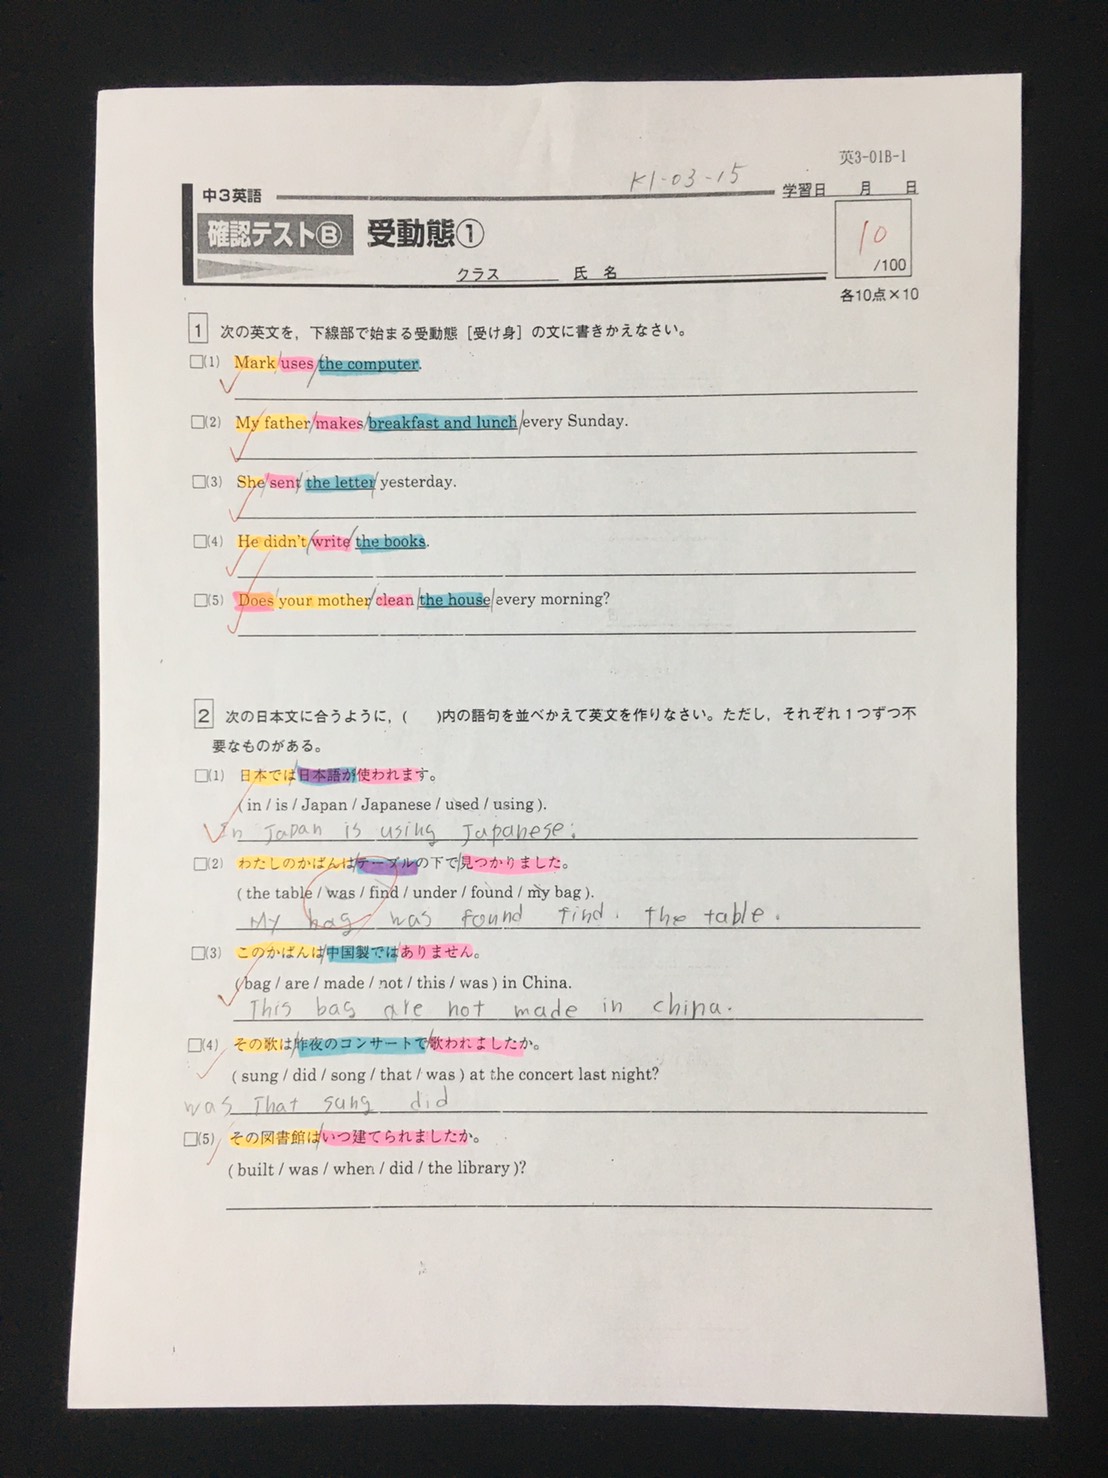 英3-01B-1
K1-03-15
中3英語
学習日 月 日
確認テストⒷ 受動態①
10
/100
クラス 氏名
各10点×10
1 次の英文を，下線部で始まる受動態［受け身］の文に書きかえなさい。
□(1) Mark/uses/the computer.
□(2) My father/makes/breakfast and lunch/every Sunday.
□(3) She/sent/the letter/yesterday.
□(4) He didn't/write/the books.
□(5) Does/your mother/clean/the house/every morning?
2 次の日本文に合うように，(　　)内の語句を並べかえて英文を作りなさい。ただし，それぞれ１つずつ不
要なものがある。
□(1) 日本では/日本語が使われます。
( in / is / Japan / Japanese / used / using ).
In Japan is using Japanese.
□(2) わたしのかばんは/テーブルの下で/見つかりました。
( the table / was / find / under / found / my bag ).
My bag was found find. the table.
□(3) このかばんは/中国製では/ありません。
( bag / are / made / not / this / was ) in China.
This bag are not made in china.
□(4) その歌は/昨夜のコンサートで/歌われましたか。
( sung / did / song / that / was ) at the concert last night?
was That sung did
□(5) その図書館は/いつ建てられましたか。
( built / was / when / did / the library )?